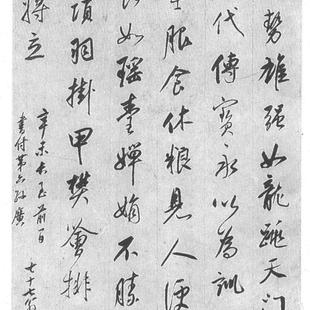 勢雄强如龍跳天門
代傳寶永以為訓
服食休粮見人便
如瑤臺嬋娟不勝
項羽掛甲樊噲排
將立
辛未長至前一日
書付第六孫廣 七十七